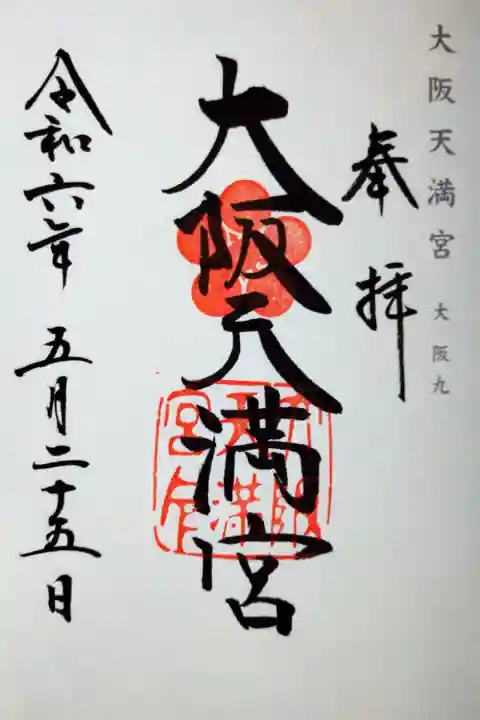 大阪天満宮 大阪九
奉拝
大阪天満宮
令和六年 五月二十五日